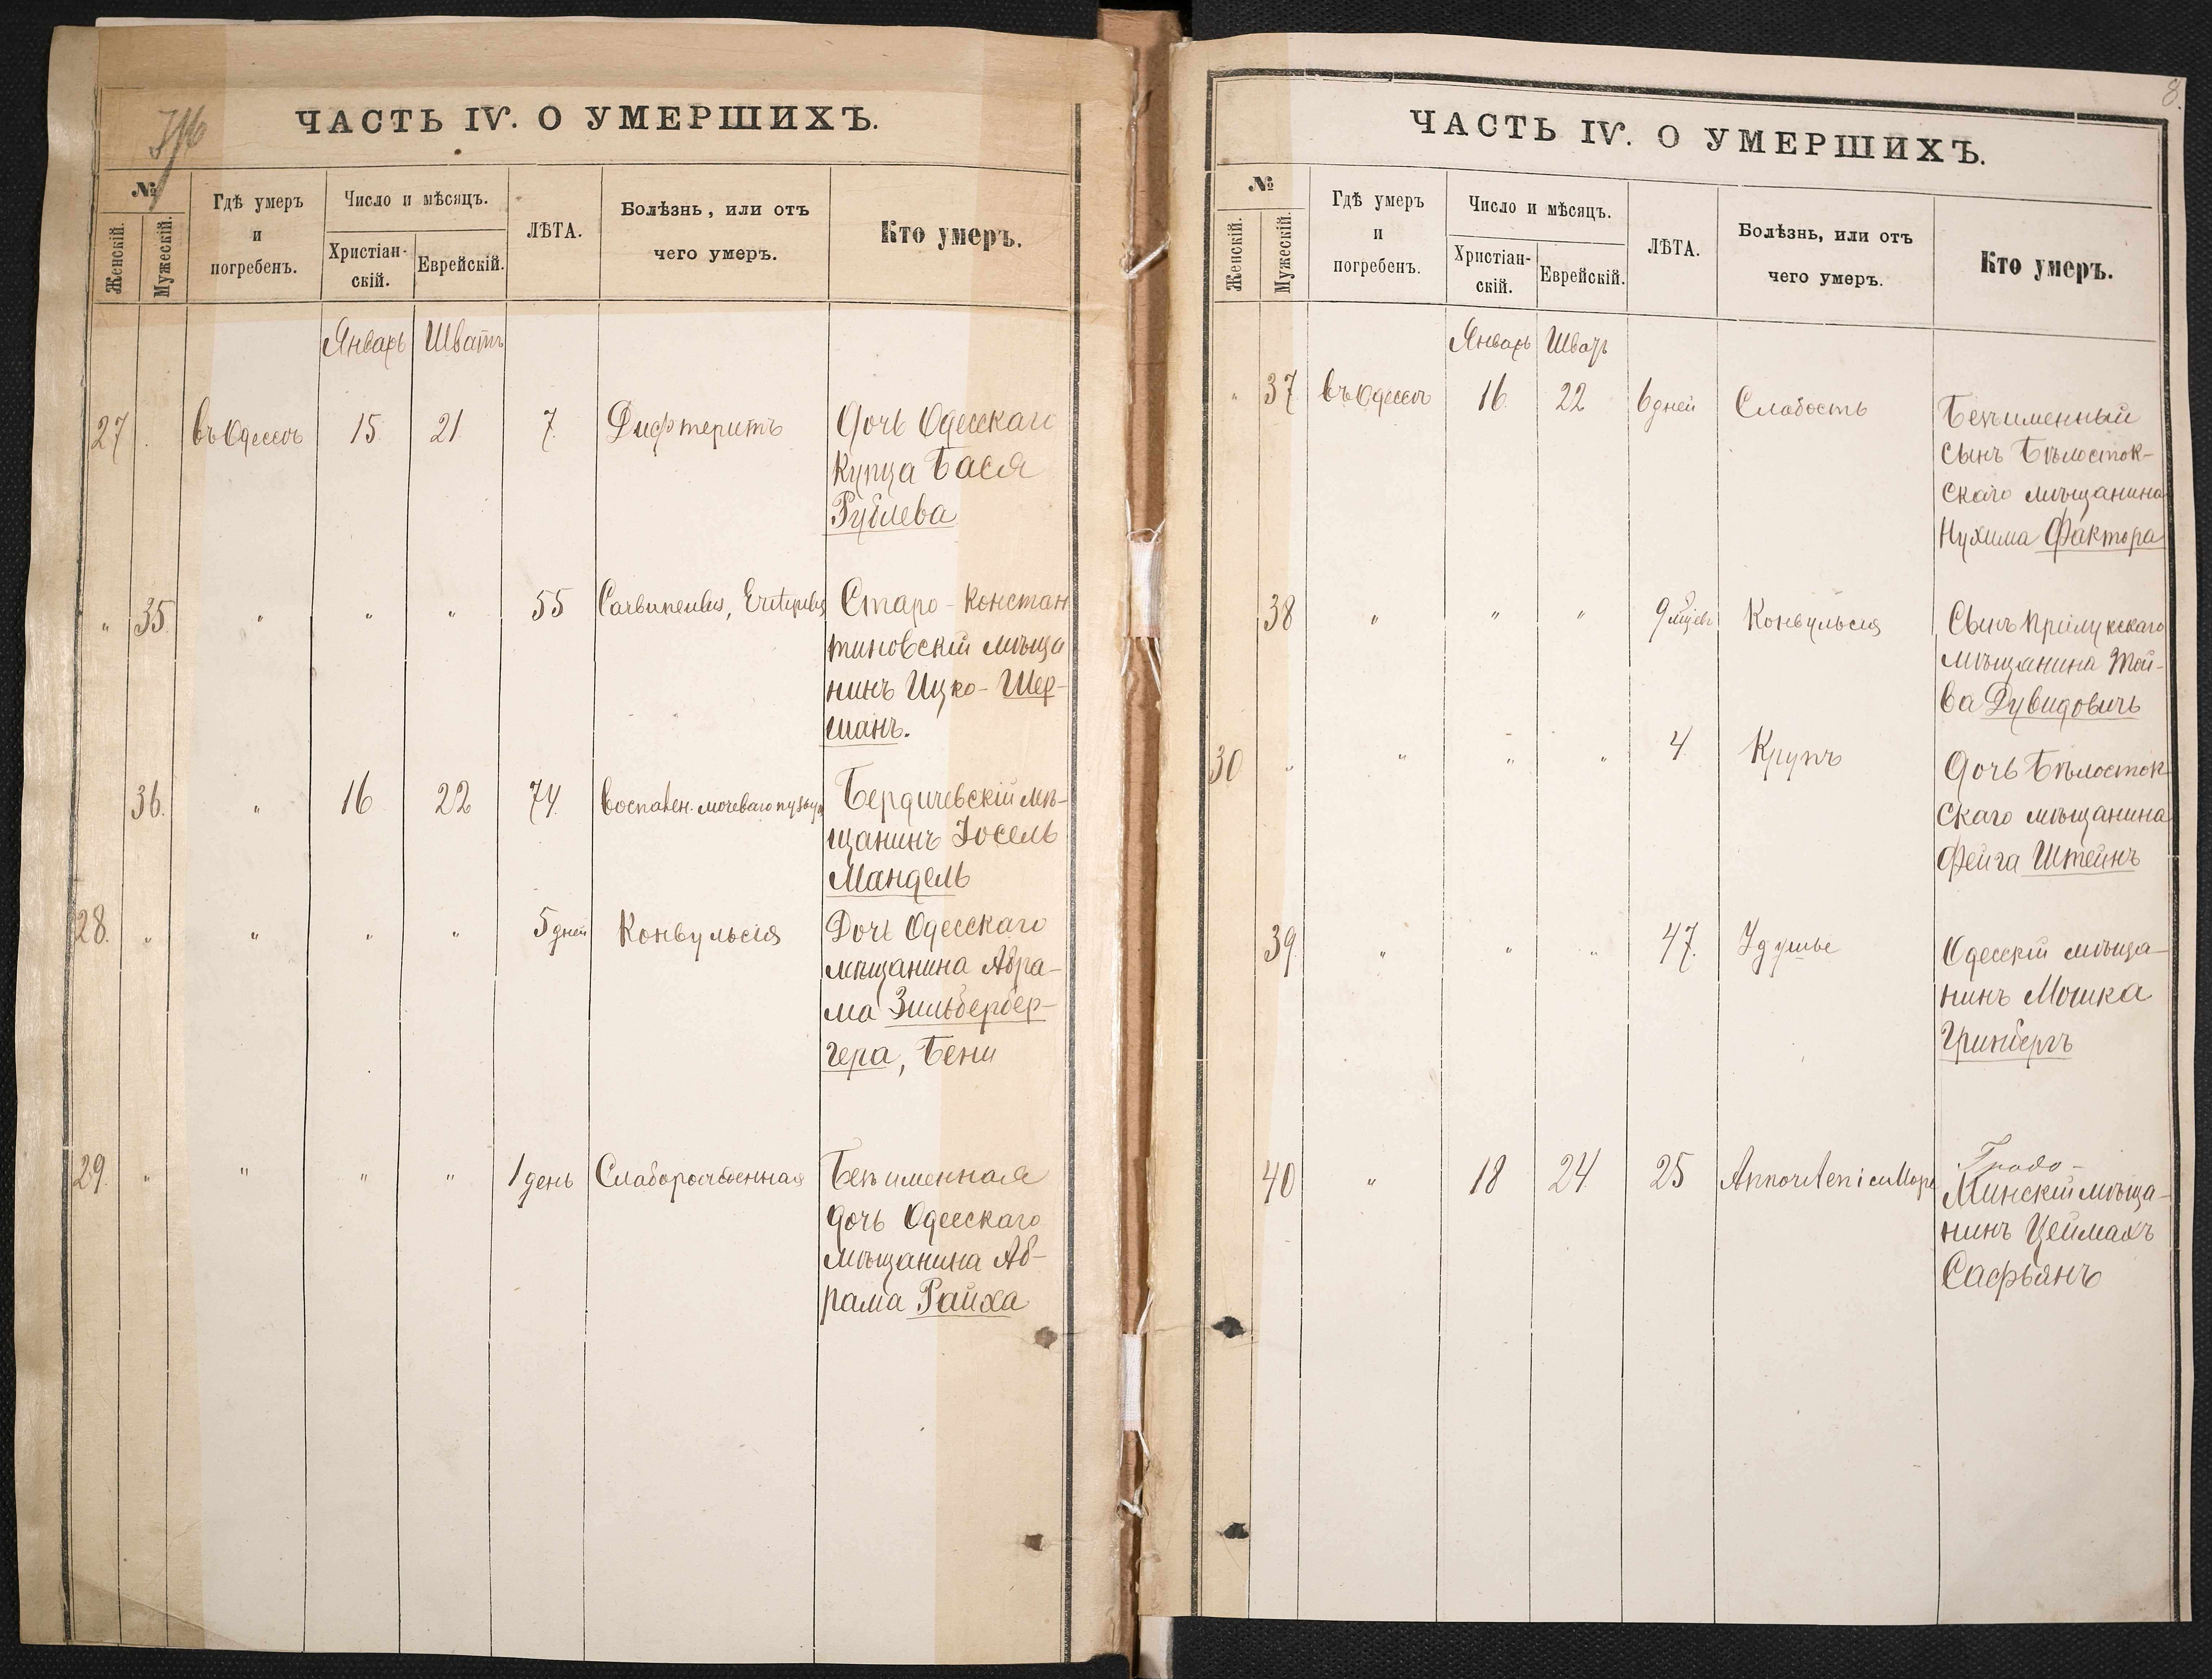 ЧАСТЬ IV. О УМЕРШИХЪ.
№
Женскій.
Мужескій.
Гдѣ умеръ
и
погребенъ.
Число и мѣсяцъ.
Христіан-
скій.
Еврейскій.
ЛѢТА.
Болѣзнь, или отъ
чего умеръ.
Кто умеръ.
Январь Шватъ
27 въ Одессѣ 15 21 7 Дифтеритъ Дочь Одесскаго
Купца Бася
Рублева
" 35 " " " 55 Старо-Констан
тиновскій мѣща
нинъ Ицко-Шер-
манъ.
36. " 16 22 74 Воспален. мочеваго пузыря Бердичевскій мѣ-
щанинъ Іосель
Мандель
28. " " " " 5 дней Конвульсія Дочь Одесскаго
мѣщанина Абра-
ма Зильбербер-
гера, Бени
29. " " " " 1 день Слаборожденная Безъименная
дочь Одесскаго
мѣщанина Аб-
рама Райха
8.
ЧАСТЬ IV. О УМЕРШИХЪ.
№
Женскій.
Мужескій.
Гдѣ умеръ
и
погребенъ.
Число и мѣсяцъ.
Христіан-
скій.
Еврейскій.
ЛѢТА.
Болѣзнь, или отъ
чего умеръ.
Кто умеръ.
Январь Шватъ
" 37 въ Одессѣ 16 22 6 дней Слабость Безъименный
сынъ Бѣлосток-
скаго мѣщанина
Нухима Фактора
38 " " " 9 Конвульсія Сынъ Прилукскаго
мѣщанина
ва Дувидовичь
30 " " " " 4 Крупъ Дочь Бѣлосток
скаго мѣщанина
Фейга Штейнъ
39 " " " 47. Удушье Одесскій мѣща-
нинъ Мошка
Гринбергъ
40 " 18 24 25
Минскій мѣща-
нинъ Цеймахъ
Сафьянъ